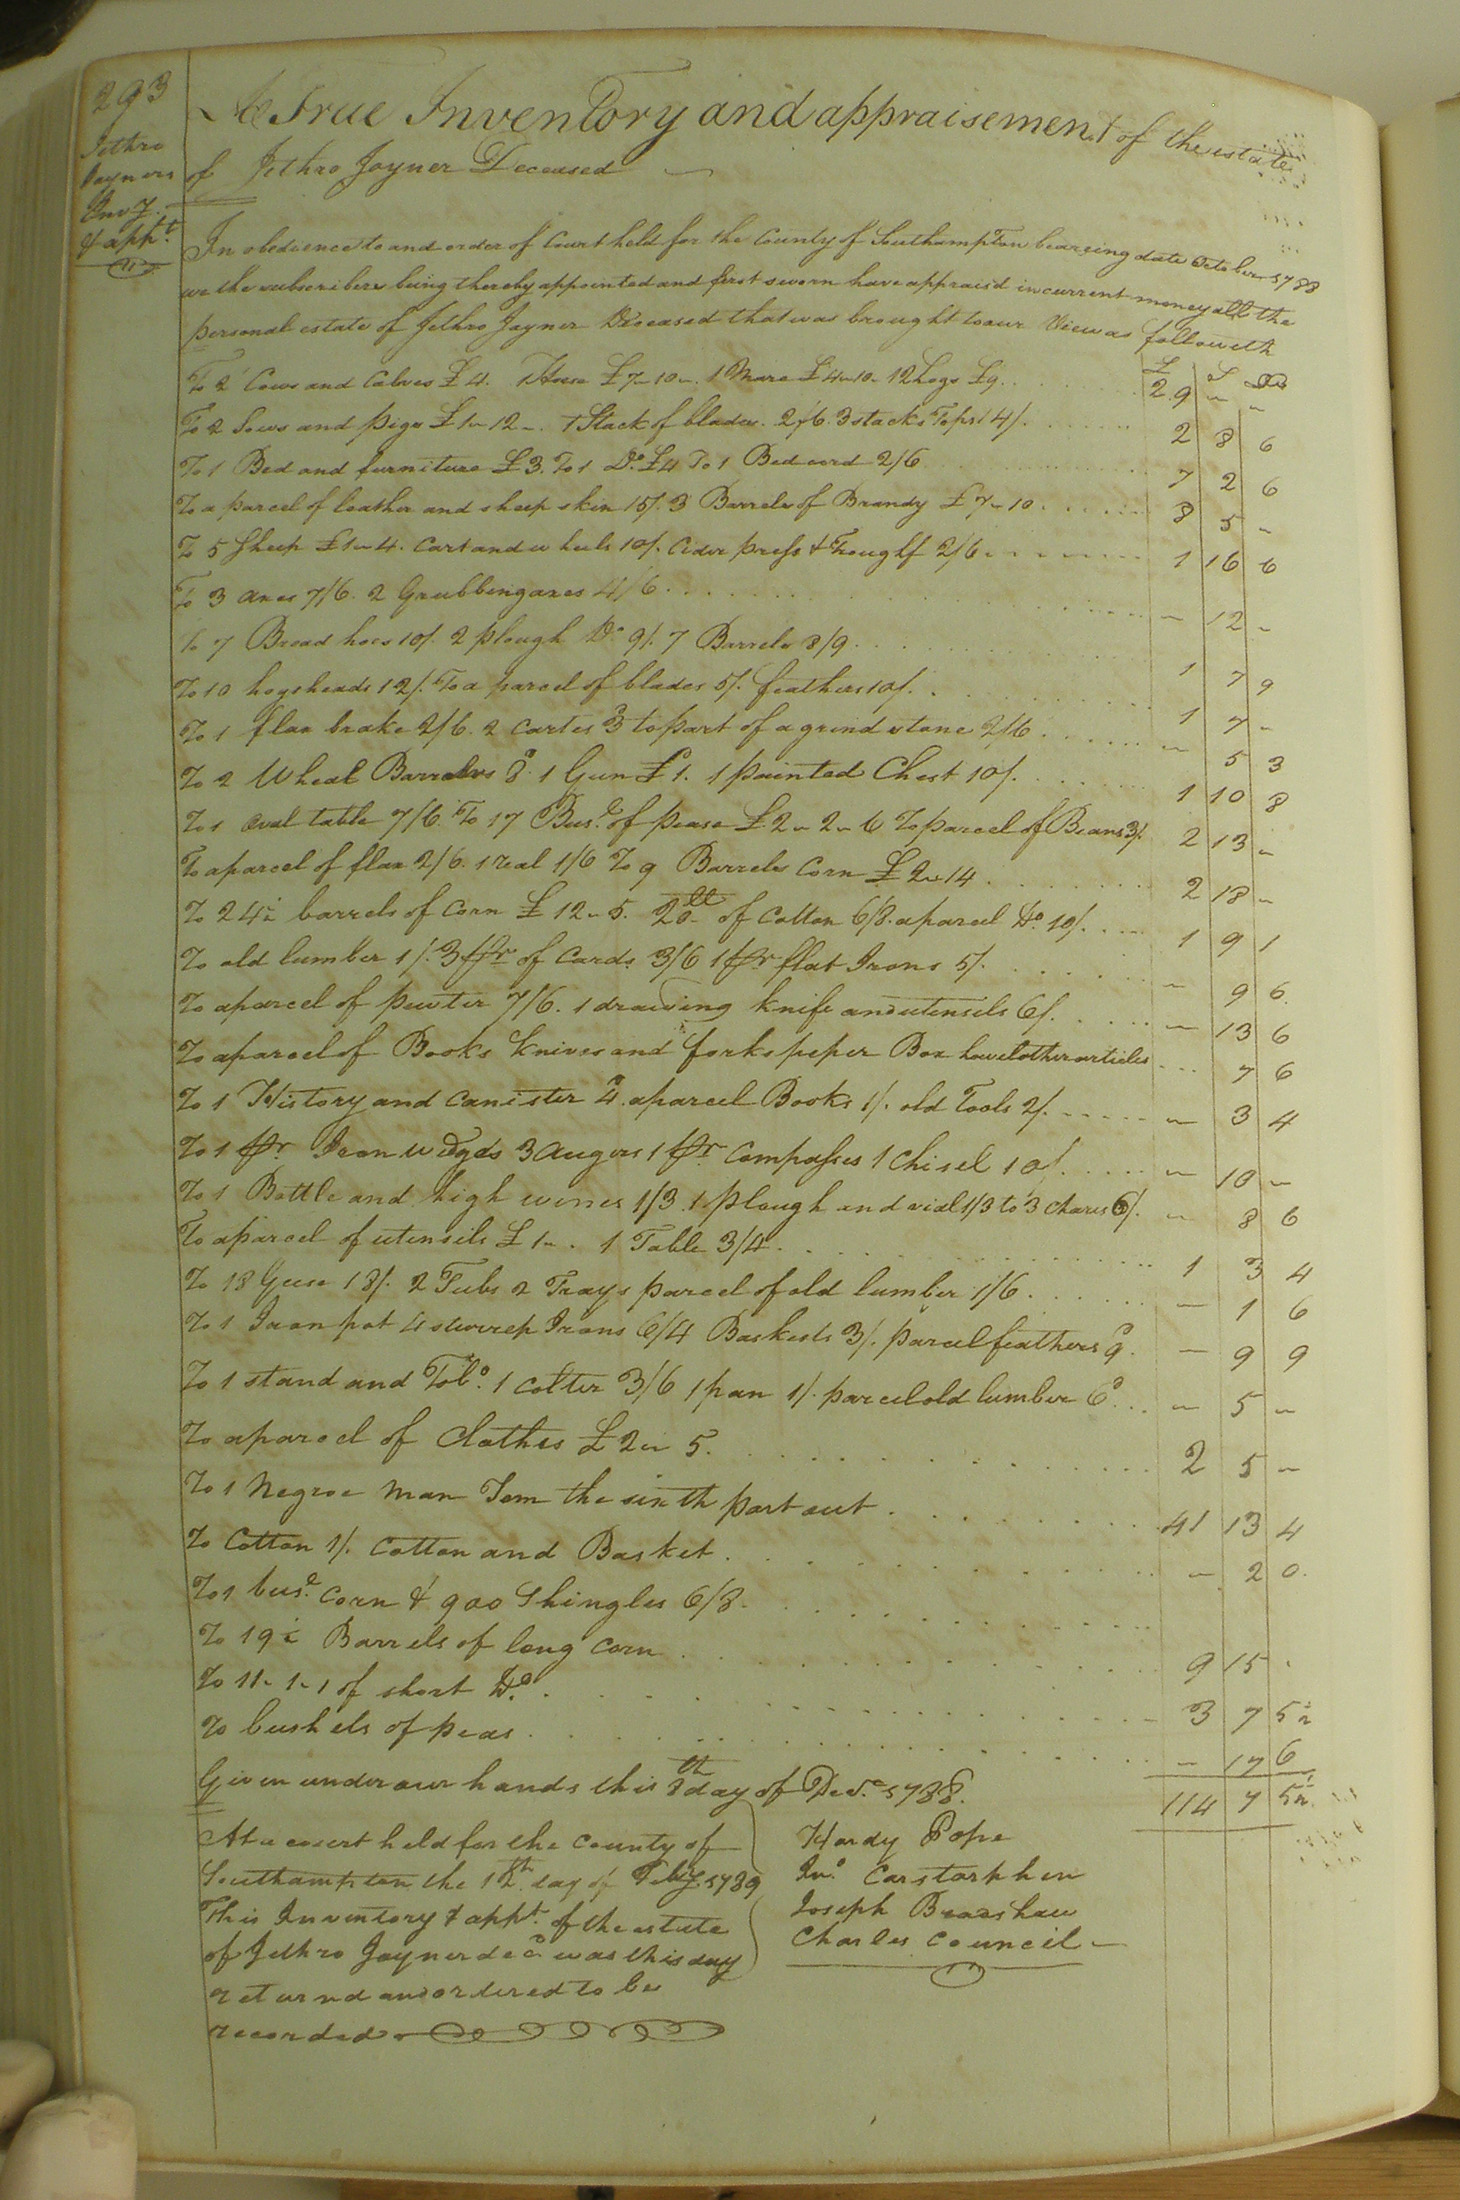 293
Jethro
Joyners
Invy
& appt.
A True Inventory and appraisement of the estate
of Jethro Joyner Deceased
In obedience to and order of Court held for the County of Southampton bearing date October 1788
we the subscribers being thereby appointed and first sworn have appraisd in current money all the
personal estate of Jethro Joyner Deceased that was brought to our View as followeth
£ S D
To 2 Cows and Calves £4. 1 Horse £7-10-. 1 Mare £4-10- 12 hogs £9.. 29 - -
To 2 Sows and pigs £1-12-. 1 Stack of blades. 2/6. 3 stacks Tops 14/. 2 8 6
To 1 Bed and furniture £3. To 1 Do. £4 To 1 Bed cord 2/6 7 2 6
To a parcel of leather and sheep skin 15/. 3 Barrels of Brandy £7-10 8 5 -
To 5 Sheep £1-4. Cart and wheels 10/. Cider press & Trough 2/6 1 16 6
To 3 axes 7/6. 2 Grubbing axes 4/6 - 12 -
To 7 Broad hoes 10/. 2 plough Do 9/. 7 Barrels 8/9 1 7 9
To 10 hogsheads 12/. To a parcel of blades 5/. feathers 10/. 1 7 -
To 1 flax brake 2/6. 2 cartes 3d to part of a grind stone 2/6 - 5 3
To 2 Wheal Barrows 8d. 1 Gun £1. 1 painted Chest 10/. 1 10 8
To 1 oval table 7/6. To 17 Buse. of pease £2-2-6 To parcel of Beans 3/. 2 13 -
To a parcel of flax 2/6. 1 real 1/6 To 9 Barrels Corn £2-14 2 18 -
To 24½ barrels of Corn £12-5. 20lt of Cotton 6/8. a parcel Do. 10/. 1 9 1
To old lumber 1/. 3 pr of Cards 3/6 1 pr flat Irons 5/. - 9 6
To a parcel of pewter 7/6. 1 drawing knife and utensils 6/. - 13 6
To a parcel of Books Knives and forks peper Box howel other articles 7 6
To 1 History and Canister 4d. a parcel Books 1/. old Tools 2/. - 3 4
To 1 pr. Iron wedges 3 Augers 1 pr compasses 1 Chisel 10/. - 10 -
To 1 Bottle and high wines 1/3. 1 plough and vial 1/3 to 3 chares 6/. - 8 6
To a parcel of utensils £1-. 1 Table 3/4. 1 3 4
To 18 Geese 18/. 2 Tubs 2 Trays parcel of old lumber 1/6. - 1 6
To 1 Iron pot 4 stirrep Irons 6/4 Baskests 3/. parcel feathers 9d. - 9 9
To 1 stand and Tobo. 1 colter 3/6 1 pan 1/. parcel old lumber 6d. - 5 -
To a parcel of Clothes £2-5. 2 5 -
To 1 Negroe man Tom the sixth part out 41 13 4
To Cotton 1/. Cotton and Basket - 2 0.
To 1 buse. corn & 900 Shingles 6/8.
To 19½ Barrels of long corn 9 15 .
To 11-1-1 of short Do. 3 7 5½
To bushels of peas - 17 6
114 7 5½
Given under our hands this 8th day of Dece. 1788.
Hardy Pope
Jno. Carstarphen
Joseph Bradshaw
Charles Council
At a court held for the County of
Southampton the 12th. day of Feby. 1789
This Inventory & appt. of the estate
of Jethro Joyner decd. was this day
returnd and ordered to be
recorded